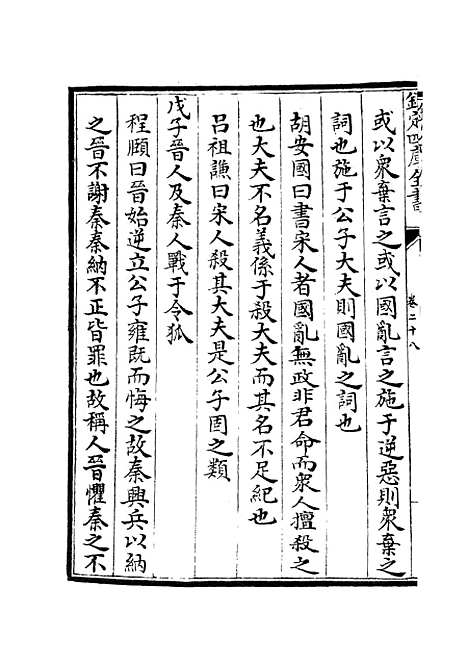 欽定四庫全書
卷二十八
或以衆棄言之或以國亂言之施于逆惡則衆棄之
詞也施于公子大夫則國亂之詞也
胡安國曰書宋人者國亂無政非君命而衆人擅殺之
也大夫不名義係于殺大夫而其名不足紀也
吕祖謙曰宋人殺其大夫是公子固之類
戊子晉人及秦人戰于令狐
程頤曰晉始逆立公子雍既而悔之故秦興兵以納
之晉不謝秦秦納不正皆罪也故稱人晉懼秦之不